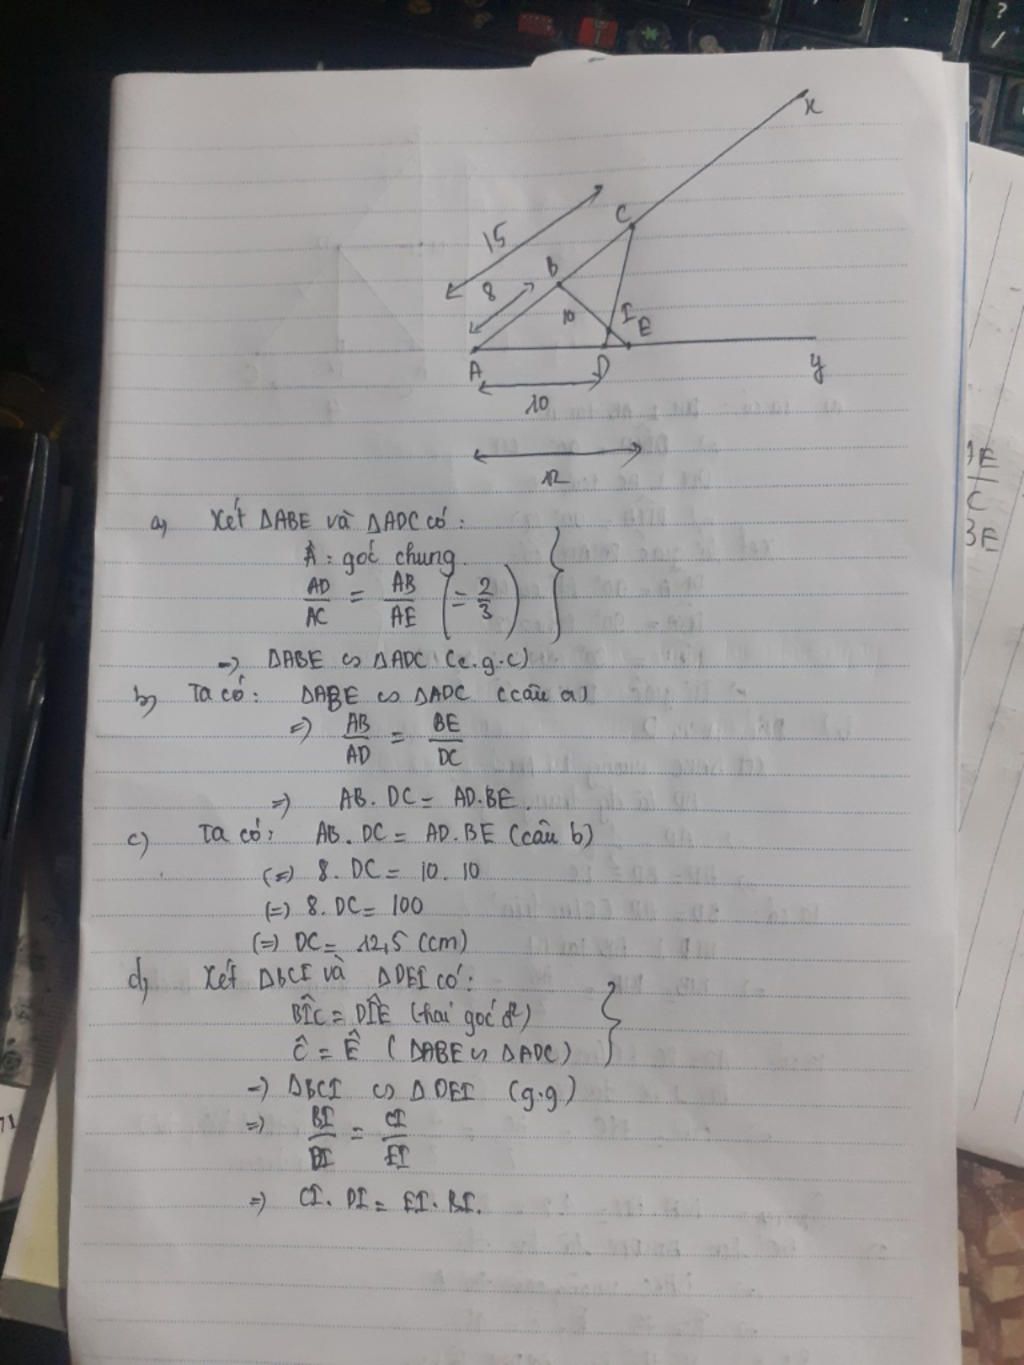 x
C
15
B
8
10
I
E
A
D
y
10
12
a) Xét ΔABE và ΔADC có:
Â: góc chung
AD/AC = AB/AE (= 2/3)
=> ΔABE ∽ ΔADC (c.g.c)
b) Ta có: ΔABE ∽ ΔADC (câu a)
=> AB/AD = BE/DC
=> AB. DC = AD.BE.
c) Ta có: AB. DC = AD.BE (câu b)
(=) 8. DC = 10. 10
(=) 8. DC = 100
(=) DC = 12,5 (cm)
d) Xét ΔBCI và ΔDEI có:
BÎC = DÎE (hai góc đ²)
Ĉ = Ê (ΔABE ∽ ΔADC)
=> ΔBCI ∽ ΔDEI (g.g)
=> BI/DI = CI/EI
=> CI. DI = EI. BI.
E
C
BE
71
?